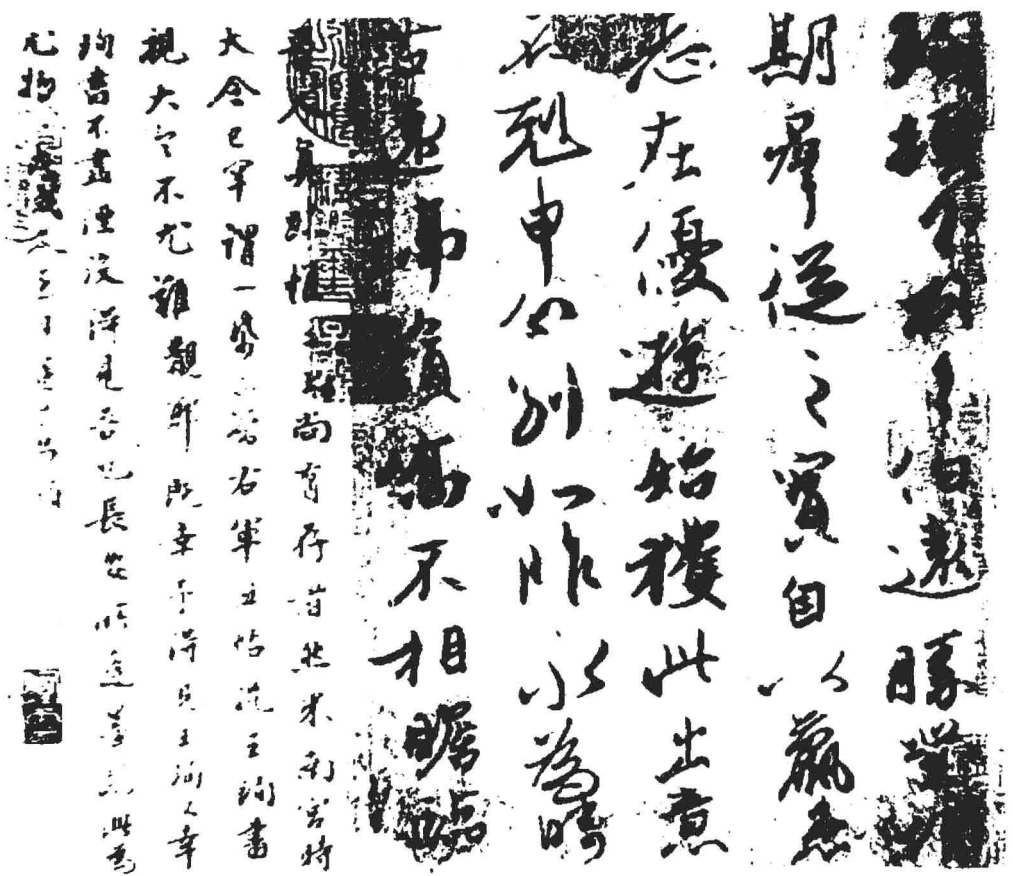 珣頓首頓首伯遠勝業情
期羣從之寶自以羸患
志在優遊始獲此出意
不剋申分別如昨永為疇
古遠隔嶺嶠不相瞻臨
晉人真跡惟二王尚有存者然米南宮時
大令已罕謂一紙可當右軍五帖況王珣書
視大令不尤難覯耶既幸予得見王珣又幸
珣書不盡湮沒得見吾也長安所逢墨跡此為
尤物